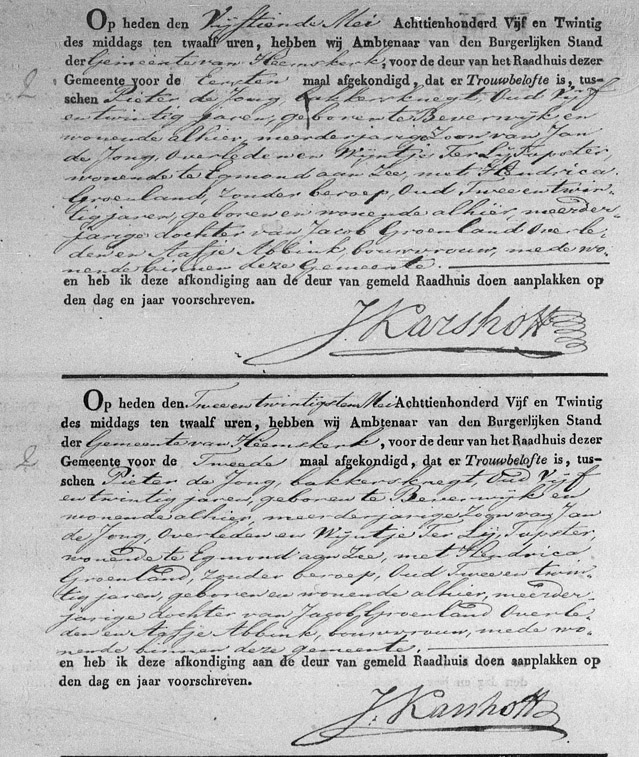 Op heden den Vijftiende Mei Achttienhonderd Vijf en Twintig
des middags ten twaalf uren, hebben wij Ambtenaar van den Burgerlijken Stand
der Gemeente van Heemskerk, voor de deur van het Raadhuis dezer
2
Gemeente voor de Eersten maal afgekondigd, dat er Trouwbelofte is, tus-
schen Pieter de Jong, bakkersknegt, Oud Vijf
entwintig jaren, geboren te Beverwijk en
wonende alhier, meerderjarige Zoon van Jan
de Jong, Overleden en Wijntje Ter Lij, Tapster,
wonende te Egmond aan Zee, met Hendrica
Groenland, Zonder beroep, Oud Twee en twin-
tig jaren, geboren en wonende alhier, meerder-
jarige dochter van Jacob Groenland Overle-
den en Aafje Abbink, bouwvrouw, mede wo-
nende binnen deze Gemeente.
en heb ik deze afkondiging aan de deur van gemeld Raadhuis doen aanplakken op
den dag en jaar voorschreven.
J. Karshoff
Op heden den Twee en twintigsten Mei Achttienhonderd Vijf en Twintig
des middags ten twaalf uren, hebben wij Ambtenaar van den Burgerlijken Stand
der Gemeente van Heemskerk, voor de deur van het Raadhuis dezer
2
Gemeente voor de Tweede maal afgekondigd, dat er Trouwbelofte is, tus-
schen Pieter de Jong, bakkersknegt, Oud Vijf
entwintig jaren, geboren te Beverwijk en
wonende alhier, meerderjarige Zoon van Jan
de Jong, Overleden en Wijntje Ter Lij, Tapster,
wonende te Egmond aan Zee, met Hendrica
Groenland, Zonder beroep, Oud Twee en twin-
tig jaren, geboren en wonende alhier, meerder
jarige dochter van Jacob Groenland Overle-
den en Aafje Abbink, bouwvrouw, mede wo-
nende binnen deze gemeente.
en heb ik deze afkondiging aan de deur van gemeld Raadhuis doen aanplakken op
den dag en jaar voorschreven.
J. Karshoff